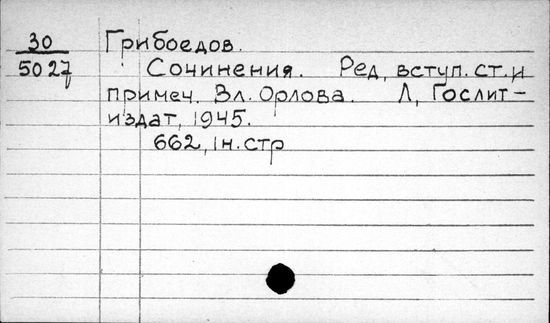 30
5027
Грибоедов.
Сочинения. Ред, вступ. ст. и
примеч. Вл. Орлова. Л, Гослит-
издат, 1945.
662, 1н. стр